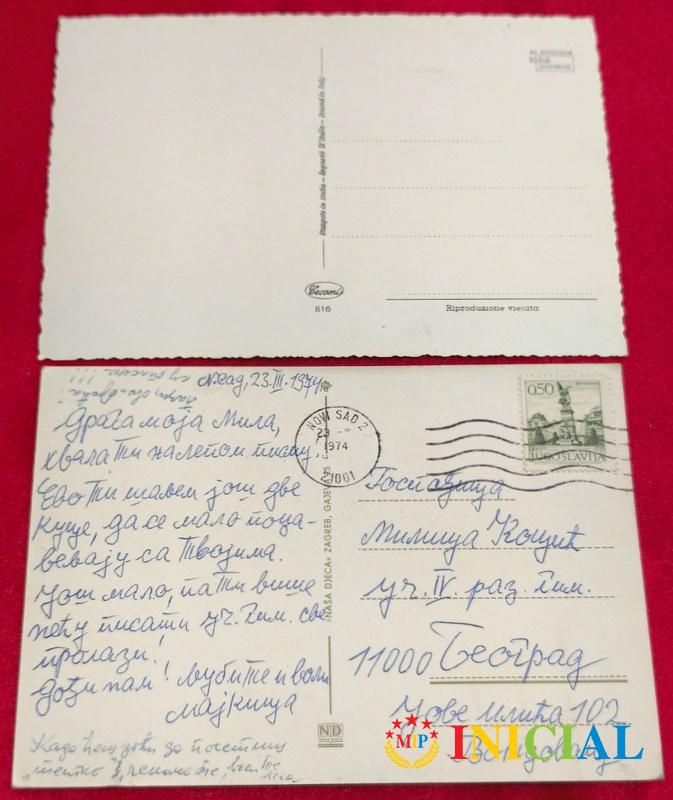 Stampato in Italia - Importé D'Italie - Printed in Italy
Cecami
816
Riproduzione vietata
N.Sad, 23.III.1974.
Драга моја Мила,
хвала ти на лепом писму
Ево ти шаљем још две
куце, да се мало поца-
вевају са твојима.
Још мало, па ти више
нећу писати уч. гим. све
пролази!
Дођи нам! Љуби те и воли
мајкица
NOVI SAD 2
23
1974
21001
0,50
JUGOSLAVIJA
»NAŠA DJECA« ZAGREB, GAJEVA 25
ND
Госпођица
Милица Коцић
уч. IV раз. гим.
11000 Београд
Јове Илића 102
Вождовац
MIP
INICIAL